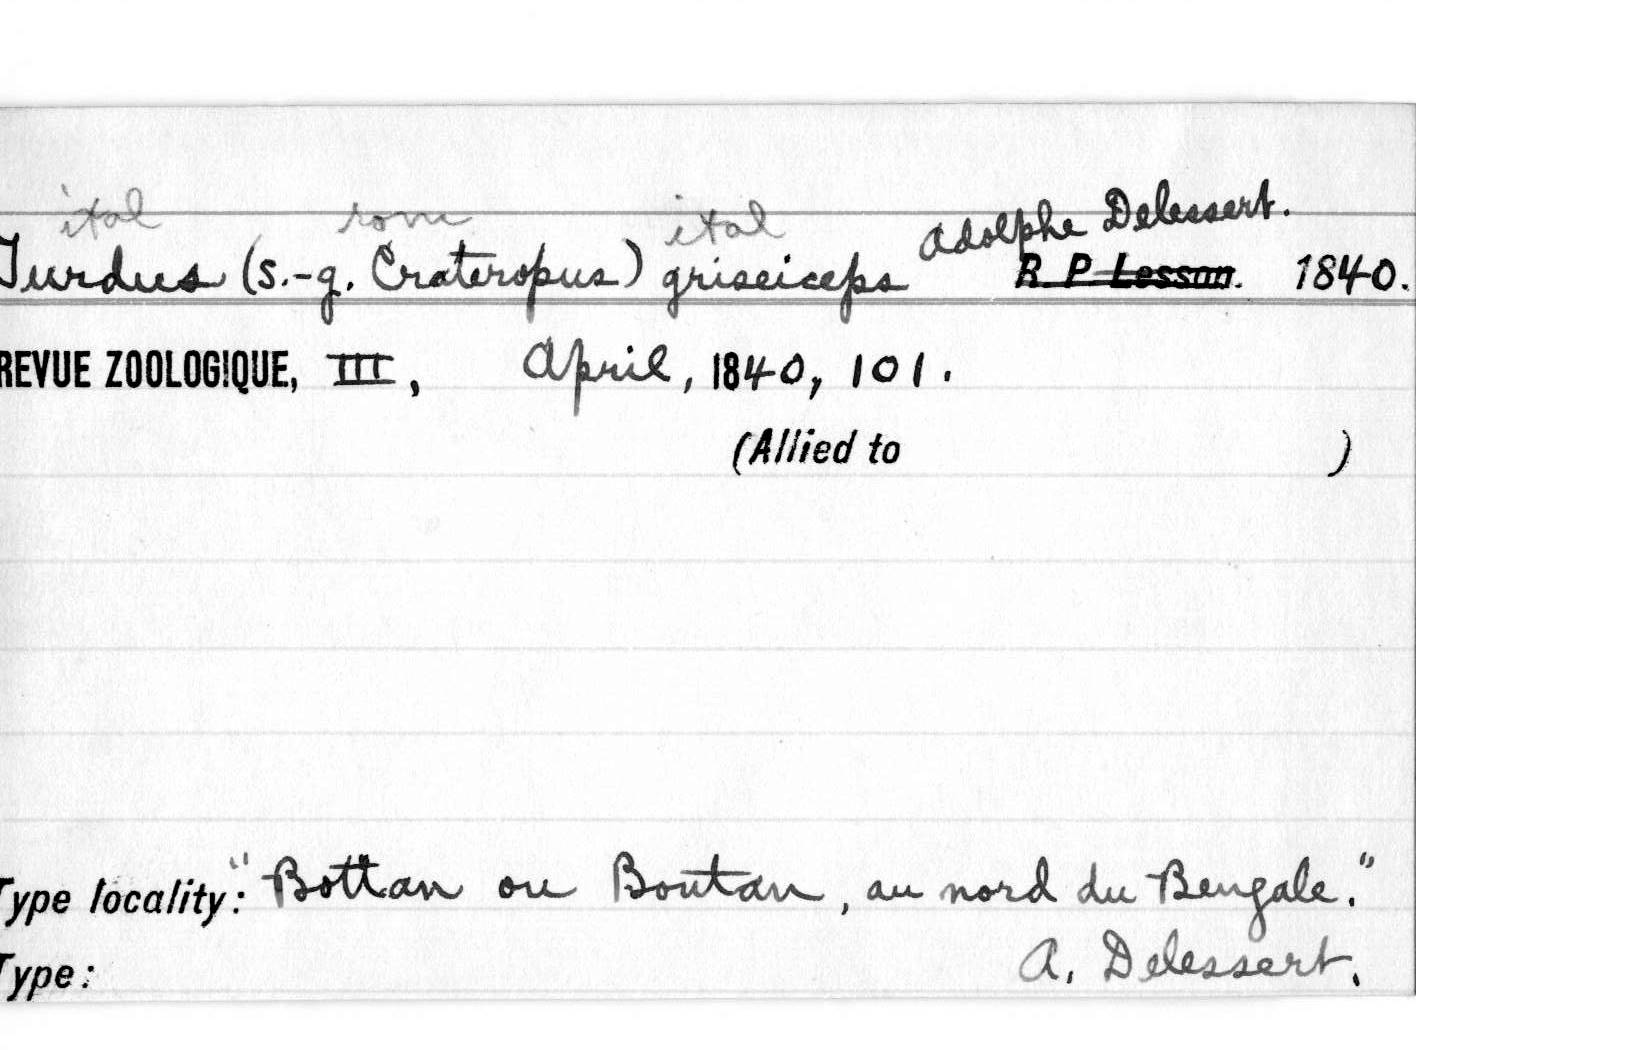 ital rom ital
Adolphe Delessert.
Turdus (s.-g. Crateropus) griseiceps R P Lesson. 1840.
REVUE ZOOLOGIQUE, III, April, 1840, 101.
(Allied to )
Type locality: "Bottan ou Boutan, au nord du Bengale."
Type: A. Delessert.